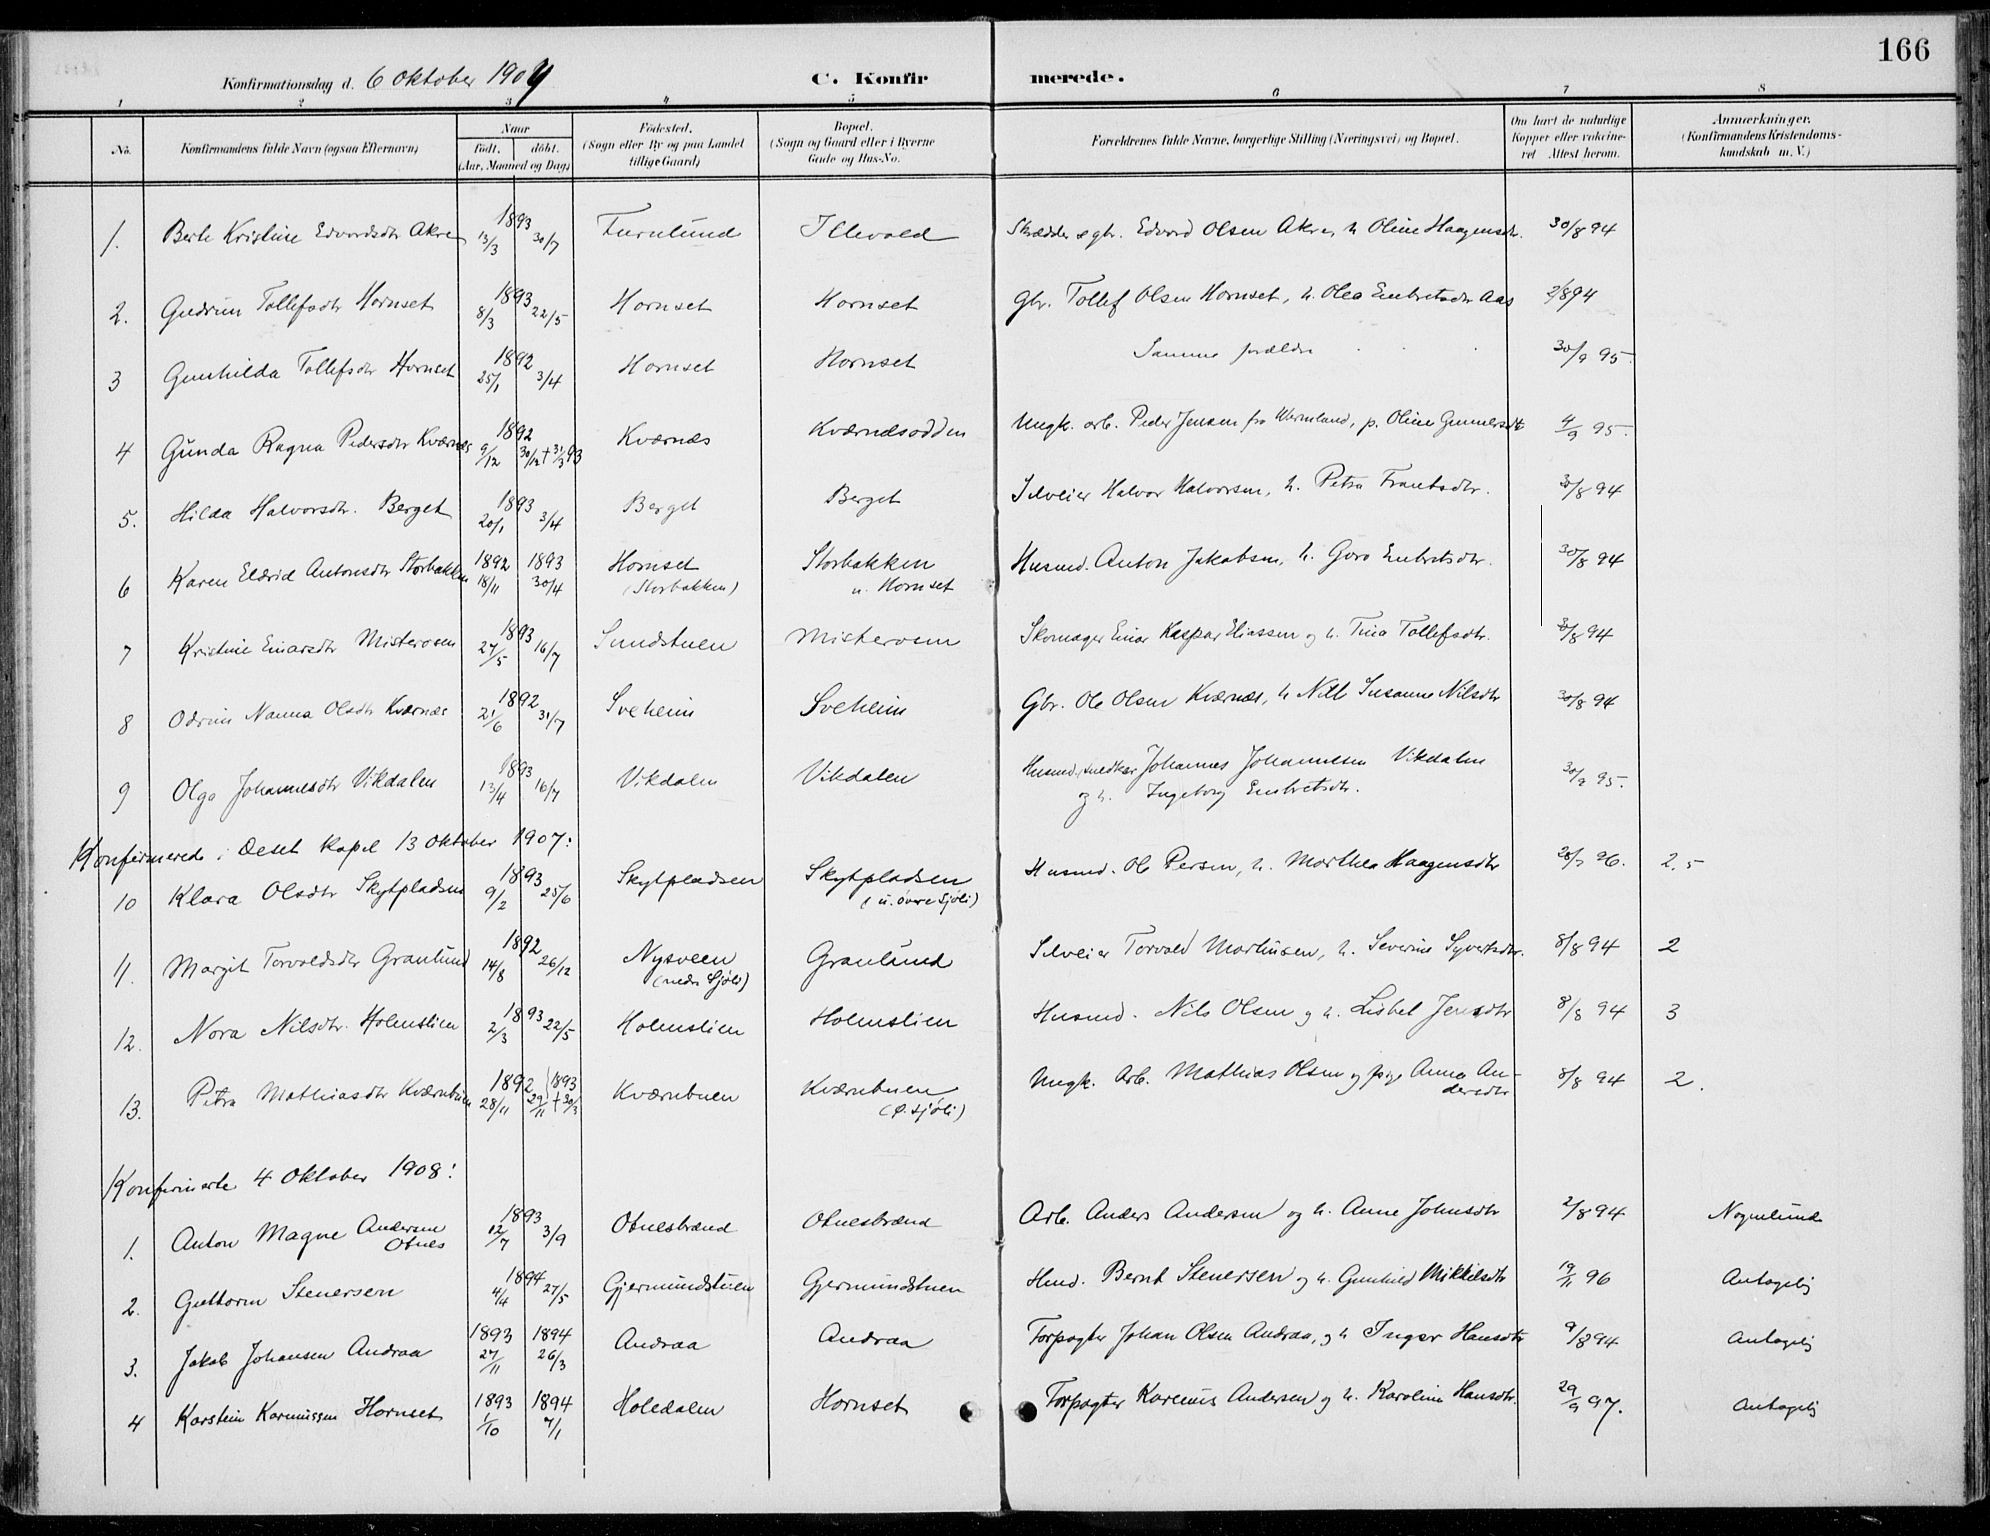 166
Konfirmationsdag d. 6 Oktober 1907 C. Konfirmerede.
1 2 3 4 5 6 7 8
No. Konfirmandens fulde Navn (ogsaa Efternavn) Naar født. døbt. (Aar, Maaned og Dag) Födested. (Sogn eller By og paa Landet tillige Gaard) Bopæl. (Sogn og Gaard eller i Byerne Gade og Hus-No. Forældrenes fulde Navne, borgerlige Stilling (Næringsvei) og Bopæl. Om havt de naturlige Kopper eller vakcineret Attest herom. Anmærkninger. (Konfirmandens Kristendomskundskab m. V.)
1. Berte Kristine Edvardsdtr Akre 1893 13/3 30/7 Furulund Illevold Skrædder & gbr. Edvard Olsen Akre, h Oline Haagensdtr. 30/8 94
2. Gudrun Tollefsdtr Hornset 1893 8/3 22/5 Hornset Hornset Gbr. Tollef Olsen Hornset, h. Olea Embretsdtr Aas 2/8 94
3 Gunhilda Tollefsdtr Hornset 1892 25/1 3/4 Hornset Hornset Samme forældre 30/9 95.
4 Gunda Ragna Pedersdtr Kværnes 1892 9/12 30/12 + 31/3 93 Kværnes Kværnesodden Ungk. arb. Peder Jensen fra Wermland, p. Oline Gunnersdtr 4/9 95.
5. Hilda Halvorsdtr. Berget 1893 20/1 3/4 Berget Berget Selveier Halvor Halvorsen, h. Petra Frantsdtr. 30/8 94
6 Karen Eldrid Antonsdtr Storbakken 1892 18/11 1893 30/4 Hornset (Storbakken) Storbakken u. Hornset Husmd. Anton Jakobsen, h. Goro Embretsdtr. 30/8 94
7 Kristine Einarsdtr Misterosen 1893 27/5 16/7 Sundstuen Misterosen Skomager Einar Kaspar Eliassen og h. Tina Tollefsdtr. 30/8 94
8 Odrun Nanna Olsdtr Kværnes 1892 21/6 31/7 Sveheim Sveheim Gbr. Ole Olsen Kværnes, h Susanne Nilsdtr 30/8 94
9 Olga Johannesdtr Vikdalen 1893 13/4 16/7 Vikdalen Vikdalen Husmd. snedker Johannes Johannesen Vikdalen
og h. Ingeborg Embretsdtr. 30/9 95.
Konfirmerede i Deset kapel 13 Oktober 1907:
10 Klara Olsdtr Skytpladsen 1893 9/2 25/6 Skytpladsen Skytpladsen (u. øvre Sjøli) Husmd. Ole Persen, h. Marthea Haagensdtr 96. 2,5
11. Margit Torvaldsdtr Granlund 1892 14/8 26/12 Nysveen (nedre Sjøli) Granlund Selveier Torvald Marthinsen, h. Severine Syvertsdtr. 8/8 94 2
12. Nora Nilsdtr. Holmslien 1893 2/3 22/5 Holmslien Holmslien Husmd. Nils Olsen og h. Lisbet Jensdtr 8/8 94 3
13. Petra Mathiasdtr Kværnbuen 1892 28/11 29/11 1893 + 30/3 Kværnbuen Kværnbuen (Ø. Sjøli) Ungk. Arb. Mathias Olsen og pige Anna Andersdtr 8/8 94 2.
Konfirmerte 4 Oktober 1908:
1. Anton Magne Andersen Otnes 1893 12/7 3/9 Otnesbrænd Otnesbrænd Arb. Anders Andersen og h. Anne Johnsdtr 2/8 94 Nogenlunde
2. Guttorm Stenersen 1894 4/4 27/5 Gjermundstuen Gjermundstuen Hmd. Bernt Stenersen og h. Gunhild Mikkelsdtr 19/11 96 Antagelig
3. Jakob Johansen Andraa 1893 27/11 1894 26/3 Andraa Andraa Forpagter Johan Olsen Andraa, og h Inger Hansdtr 9/8 94 Antagelig
4 Karstein Karenussen Hornset 1893 1/10 1894 7/1 Holedalen Hornset Forpagter Karenus Andersen og h. Karoline Hansdtr. 29/9 97. Antagelig